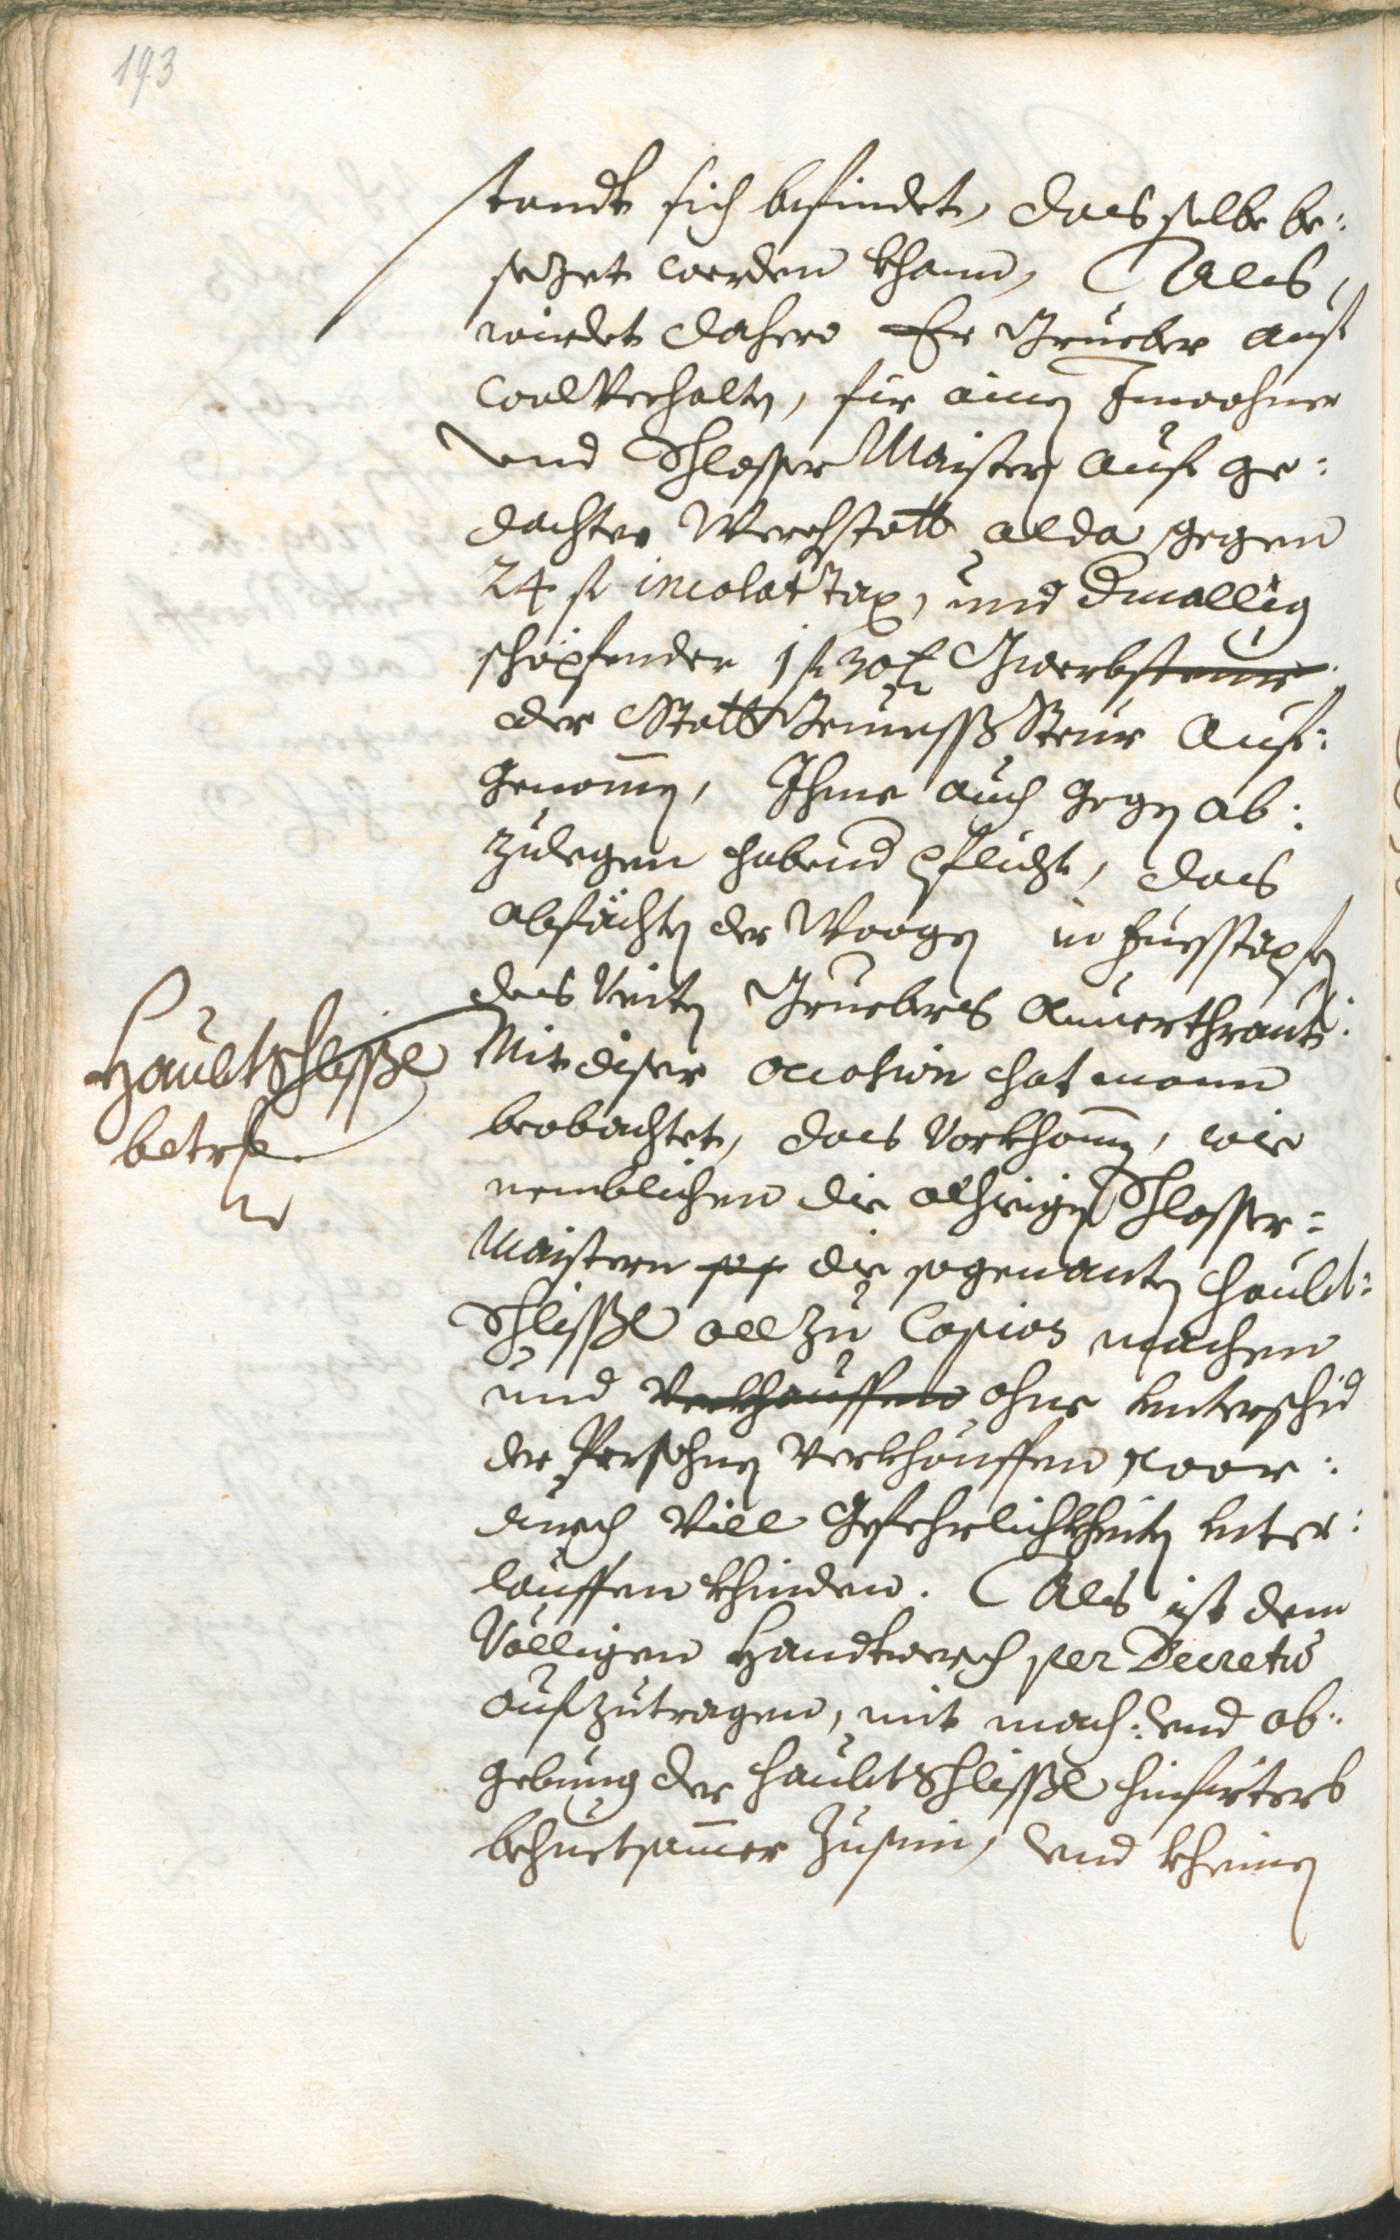 193
standt sich befindet, das selbe be:
sezet werden khann, Als
wirdet dahero Er Grueber auf
wolverhalten, für ainen Inwohner
und Schlosser Maistern auf ge:
dachter Werchstatt alda gegen
24 f incolat tax, und
schöpfender 1 f 30 x Gwerbsteur
der Statt Steur auf:
genommen, Ihme auch gegen ab:
zulegen habend Pflicht, das
abfächten der Waagen in Fuesstapfen
des Veiten Gruebers anverthraut.
Haubtschlissl
betrf.
Mit diser occasion hat mann
beobachtet, das vorkhommen, wie
nemblichen die alhiesigen Schlosser=
Maistern die sogenanten Haubt=
Schlissl all zu Copios machen
und verkhauffen ohne Unterschid
der Persohnen verkhauffen, wor:
durch vill Gefehrlichkheiten unter:
lauffen khinden. Als ist dem
völligen Handtwerch per Decretum
aufzutragen, mit mach: und ab:
gebung der Haubtschlissl hinfüters
behuetsammer zusein, und kheinen